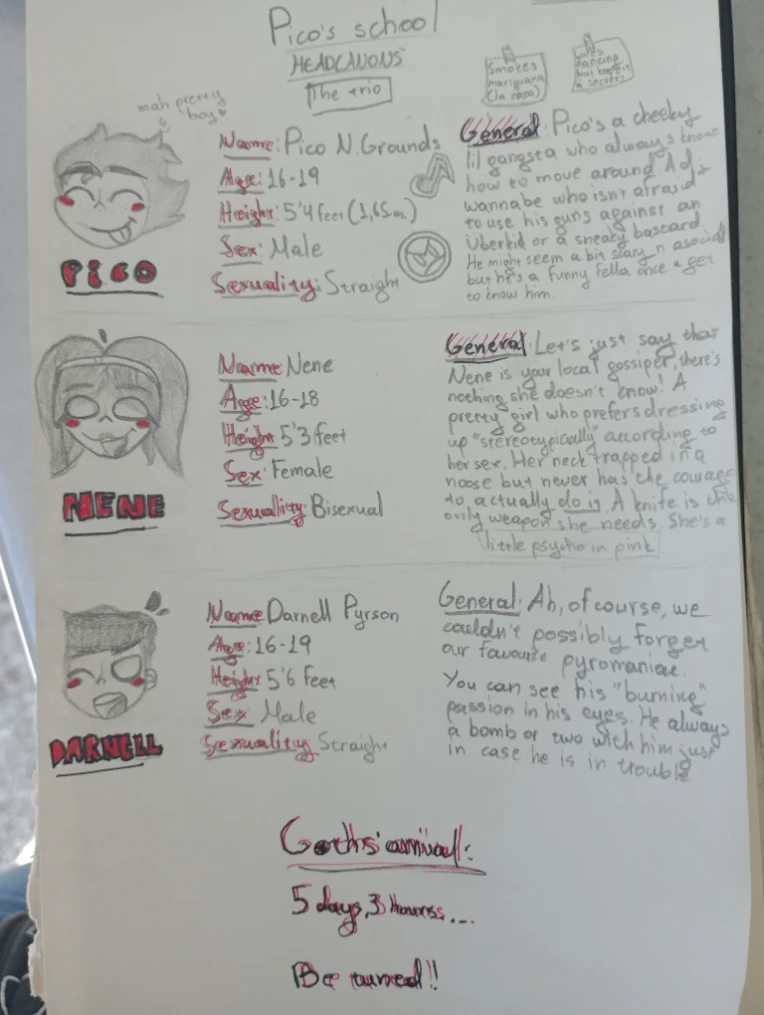 Pico's school
HEADCANONS
The trio
Smokes
marigiuana
(la coca)
dancing
but keeps it
a secret
mah pretty
boy
PICO
Name: Pico N. Grounds
Age: 16-19
Height: 5'4 feet (1,65m.)
Sex: Male
Sexuality: Straight
General: Pico's a cheeky
lil gangsta who always knows
how to move around. A dj
wannabe who isn't afraid
to use his guns against an
Überkid or a sneaky bastard.
He might seem a bit scary n asocial
but he's a funny fella once u get
to know him.
NENE
Name: Nene
Age: 16-18
Height: 5'3 feet
Sex: Female
Sexuality: Bisexual
General: Let's just say that
Nene is your local gossiper, there's
nothing she doesn't know! A
pretty girl who prefers dressing
up "stereotypically" according to
her sex. Her neck trapped in a
noose but never has the courage
to actually do it. A knife is the
only weapon she needs. She's a
little psycho in pink
DARNELL
Name: Darnell Pyrson
Age: 16-19
Height: 5'6 feet
Sex: Male
Sexuality: Straight
General: Ah, of course, we
couldn't possibly forget
our favourite pyromaniac.
You can see his "burning"
passion in his eyes. He always
a bomb or two with him just
in case he is in trouble
Goths' arrival:
5 days, 3 hourss...
Be tuned!!